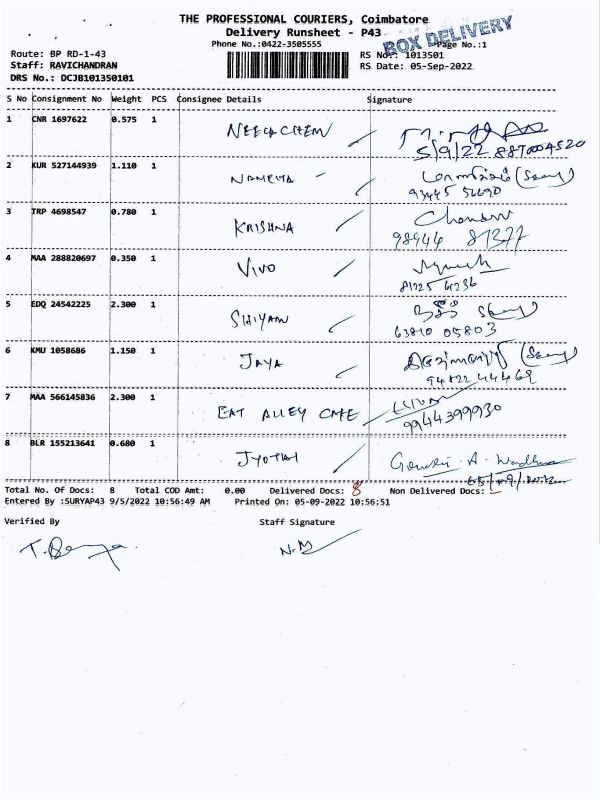 THE PROFESSIONAL COURIERS, Coimbatore
Delivery Runsheet - P43
Phone No.:0422-3505555
BOX DELIVERY
Page No.:1
Route: BP RD-1-43
RS No: 1013501
Staff: RAVICHANDRAN
RS Date: 05-Sep-2022
DRS No.: DCJB101350101
S No Consignment No Weight PCS Consignee Details Signature
1 CNR 1697622 0.575 1 NEELACHEM
5/9/22 8870004520
2 KUR 527144939 1.110 1 NAMEITA
93445 56690
3 TRP 4698547 0.780 1 KRISHNA
98944 81377
4 MAA 288820697 0.350 1 VIVO
81225 61236
5 EDQ 24542225 2.300 1 SHIYAM
63810 05803
6 KMU 1058686 1.150 1 JAYA
94822 44469
7 MAA 566145836 2.300 1 EAT ALLEY CAFE
9944399930
8 BLR 155213641 0.680 1 JYOTHI
Total No. Of Docs: 8 Total COD Amt: 0.00 Delivered Docs: 8 Non Delivered Docs:
Entered By :SURYAP43 9/5/2022 10:56:49 AM Printed On: 05-09-2022 10:56:51
Verified By Staff Signature